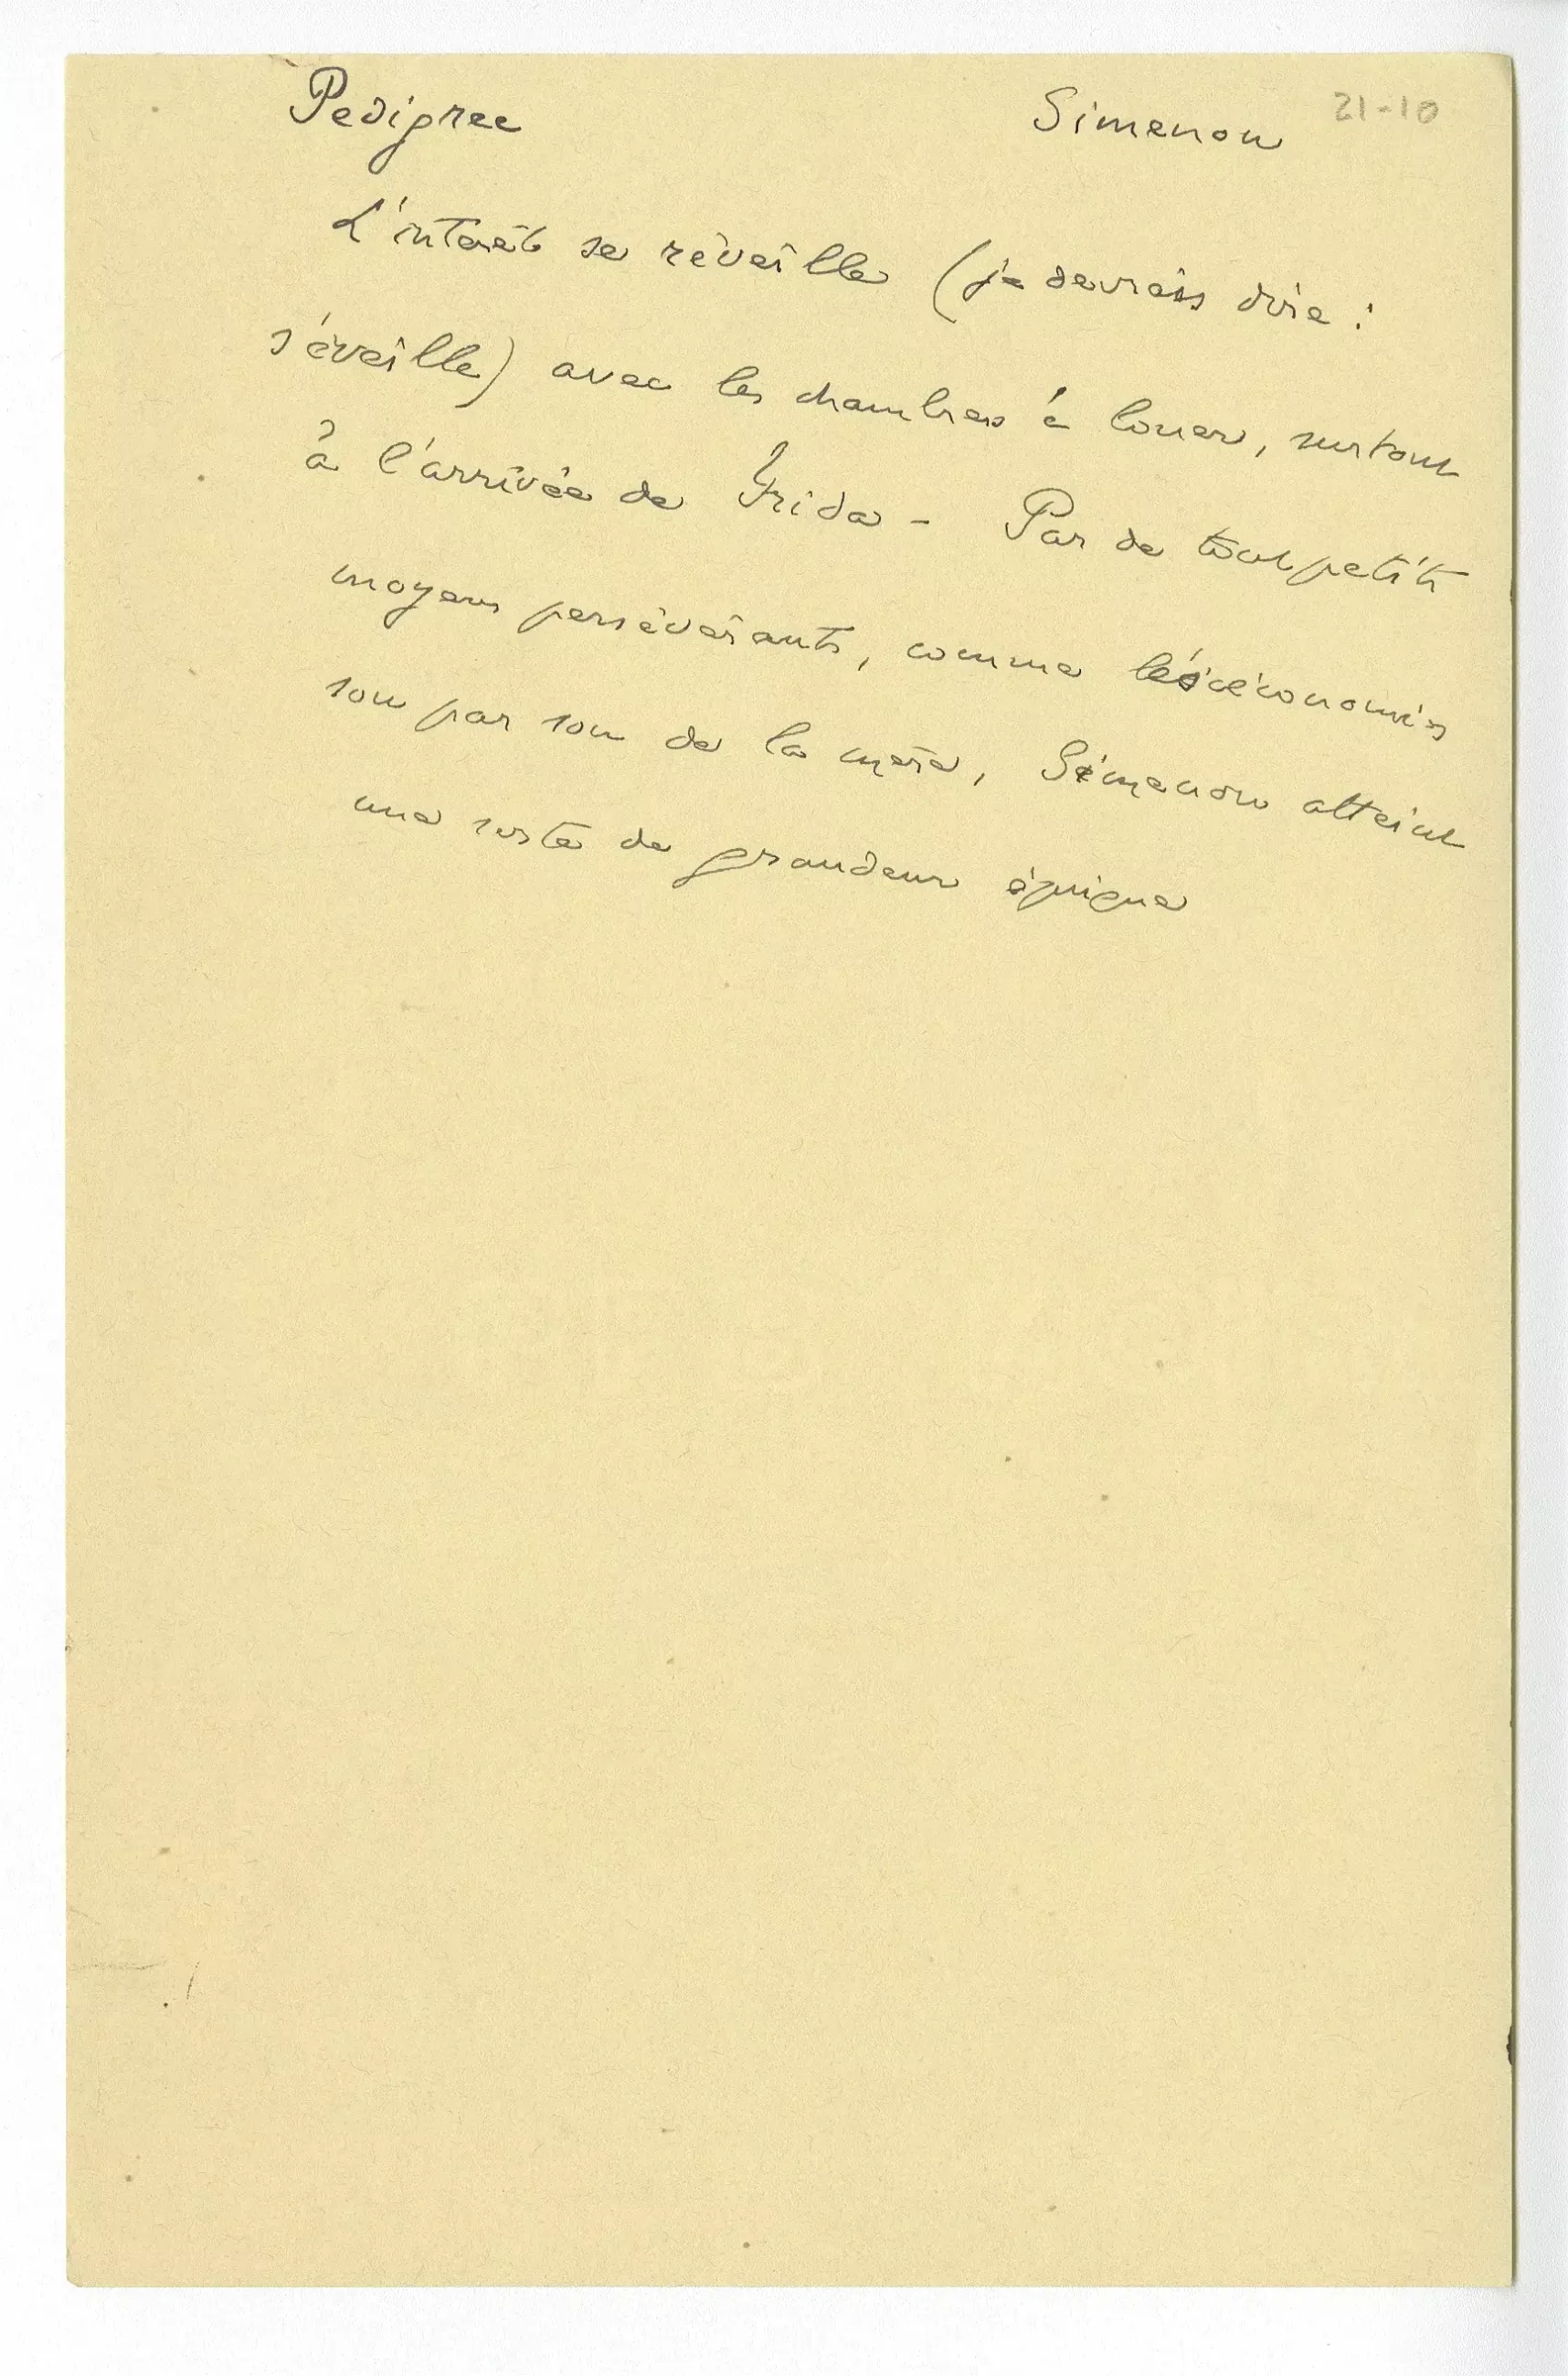 Pedigree Simenon 21-10
L'intérêt se réveille (je devrais dire :
s'éveille) avec les chambres à louer, surtout
à l'arrivée de Frida - Par de tout petits
moyens persévérants, comme les économies
sou par sou de la mère, Simenon atteint
une sorte de grandeur épique